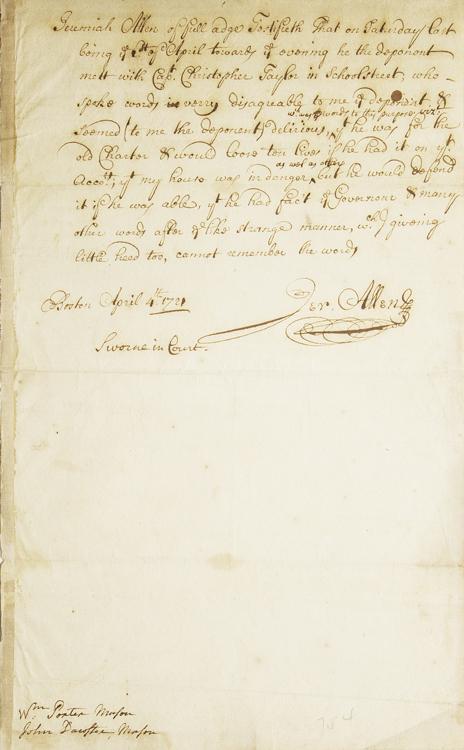 Jeremiah Allen of full adge Testifieth That on Saturday last
being ye 1st of April towards ye evening he the deponent
mett with Capt. Christopher Taylor in Schoolstreet, who
spoke words in verry disagreable to me ye deponent &
words to this purpose
seemed to me the deponent delirious, yt he was for the
old Charter & would loose ten lives if he had it on yt
as well as others
Accott, yt my house was in danger, but he would defend
it if he was able, yt he had fact ye Governour & many
other words after ye like strange manner, wch I giveing
little heed too, cannot remember the words
Boston April 4th 1721
Jer. Allen
Sworne in Court.
Wm Porter Mason
John Mason
754